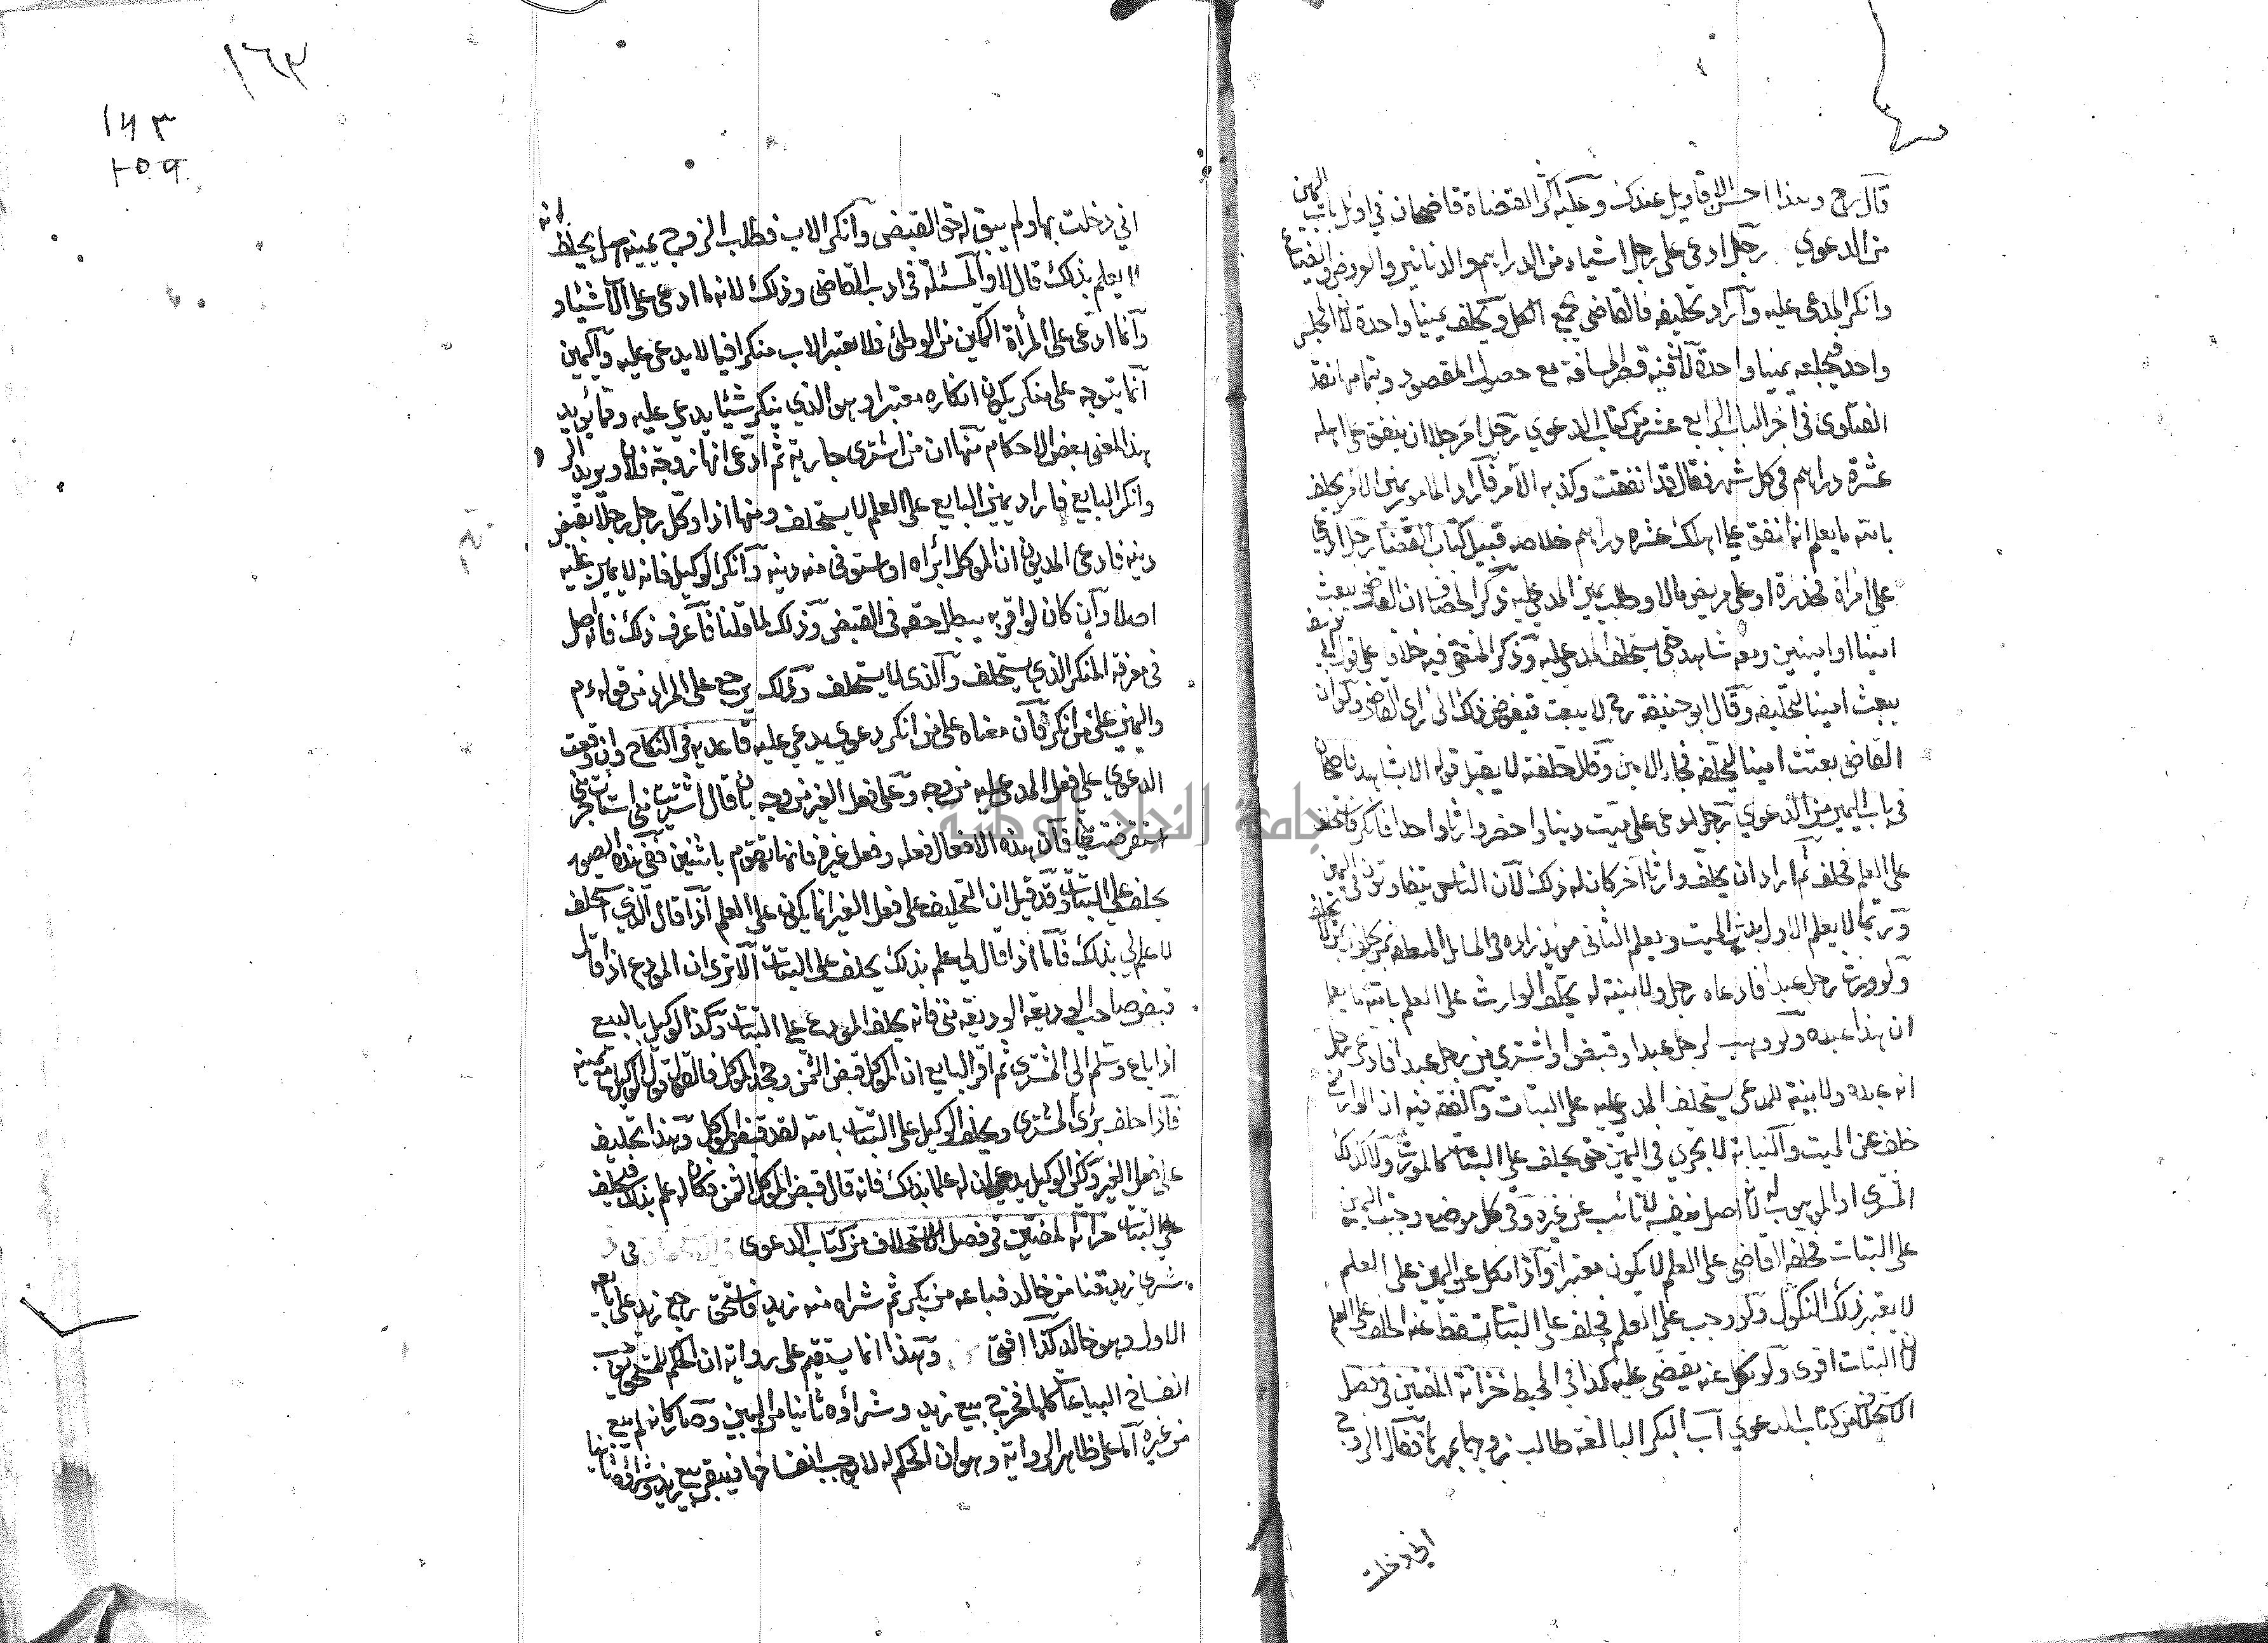 قال رح وهذا احسن الاقاويل عندك وعليه اكثر القضاة قاضيخان في اول باب اليمين
من الدعوي رجل ادعى على رجل اشياء من الدراهم والدنانير والعروض والضياع
وانكر المدعى عليه وآراد تحليفه فالقاضي يجمع الكل ويحلف يمينا واحدة لان المجلس
واحد فيحلفه يمينا واحدة لان فيه قصر المسافة مع حصول المقصود وتمامها نقد
الفتاوى في اخر الباب الرابع عشر من كتاب الدعوي رجل امر رجلا ان ينفق على اهله
عشرة دراهم في كل شهر فقال قد انفقت وكذبه الآمر فآراد المامور يمين الآمر يحلف
بالله ما يعلم انه انفق على اهلك عشرة دراهم خلاصه قبيل كتاب القضا رجل ادعى
على امراة مخدرة او على مريض مالا وطلب يمين المدعى عليه ذكر الخصاف ان القاضي يبعث
امينا او امينين ومعه شاهد حتى يستحلف المدعى عليه وذكر المنتقى فيه خلاف على قول ابي يوسف
يبعث امينا لتحليفه وقال ابو حنيفة رح لا يبعث فيفوض ذلك الى راي القاضي ولو ان
القاضي بعثت امينا ليحلفه فجاء الامين وقال حلفته لا يقبل قوله الا بشاهد قاضيخان
في باب اليمين من الدعوي رجل ادعى على ميت دينا واحضر وارثا واحدا فانكر فاستحلف
على العلم فحلف ثم اراد ان يحلف وارثا آخر كان له ذلك لان الناس يتفاوتون في اليمين
وربما لا يعلم الاول بدين الميت ويعلم الثاني من
ولو ورث رجل عبدا فادعاه رجل ولا بينة له يحلف الوارث على العلم بالله ما يعلم
ان هذا عبده ولو وهب لرجل عبدا وقبض او اشترى من رجل عبدا فادعى رجل
انه عبده ولا بينة للمدعى يستحلف المدعى عليه على البتات والفقه فيه ان الوارث
خلف عن الميت والنيابة لا تجري في اليمين حتى يحلف على البتات كالمورث ولا كذلك
المشترى او الموهوب له لانه اصل بنفسه لا نائب عن غيره وفى كل موضع وجبت اليمين
على البتات فحلفه القاضي على العلم لا يكون معتبرا وآذا نكل عن اليمين على العلم
لا يعتبر ذلك النكول ولو وجب على العلم فحلف على البتات سقط عنه الحلف على العلم
لان البتات اقوى ولو نكل عنه يقضى عليه كذا في المحيط خزانة المفتين في فصل
الاستحلاف من كتاب الدعوي آب البكر البالغة طالب زوجها بمهرها فقال الزوج
اني دخلت
اني دخلت بها ولم يبق له حق القبض وآنكر الاب فطلب الزوج يمينه هل يحلف انه
لا يعلم بذلك قال لا والمسئلة في ادب القاضي وذلك لانه ما ادعى على الاب شيئا
وآنما ادعى على المرأة التمكين من الوطئ فلا يعتبر الاب منكرا فيما لا يدعى عليه واليمين
آنما يتوجه على منكر يكون انكاره معتبرا وهو الذي ينكر شيئا يدعى عليه ومما يؤيد
هذا المعنى بعض الاحكام منها ان من اشترى جارية ثم ادعى انها زوجة فلان ويريد الرد
وانكر البايع فاراد يمين البايع على العلم لا يستحلف ومنها اذا وكل رجل رجلا بقبض
دينه فادعى المديون ان الموكل ابرأه او استوفى منه دينه وآنكر الوكيل فانه لا يمين عليه
اصلا وآن كان لو اقر به يبطل حقه في القبض وذلك لما قلنا فآعرف ذلك فانه اصل
في معرفة المنكر الذي يستحلف والذى لا يستحلف وذلك يرجع على المراد من قوله ءم
واليمين على من انكر فآن معناه على من انكر دعوي يدعى عليه قاعديه في النكاح وان وقعت
الدعوي على فعل المدعى عليه من وجه وعلى فعل الغير من وجه بان قال اشتريت مني استأجرت مني
استقرضت مني فآن هذه الافعال فعله وفعل غيره فانها تقوم باثنين ففي هذه الصور
يحلف على البتات وقد قيل ان التحليف على فعل الغير انما يكون على العلم آذا قال الذي استحلف
لا علم لي بذلك فآما اذا قال لي علم بذلك يحلف على البتات آلا ترى ان المودع اذا قال
قبض صاحب الوديعة الوديعة مني فانه يحلف المودع على البتات وكذا الوكيل بالبيع
اذا باع وسلم الى المشتري ثم اقر البايع ان الموكل قبض الثمن وجحد الموكل فالقول قول الوكيل مع يمينه
فآذا حلف برئ المشتري ويحلف الوكيل على البتات بالله لقد قبض الموكل وهذا تحليف
على فعل الغير ولكن الوكيل يدعي ان له علما بذلك فانه قال قبض الموكل الثمن فكان له علم بذلك فيحلف
على البتات خزانة المفتين في فصل الاستحلاف من كتاب الدعوى
شرى زيد قنا من خالد فباعه من بكر ثم شراه منه زيد فاستحق رجع زيد على بايعه
الاول وهو خالد كذا افتى وهذا انما يستقيم على رواية ان الحكم للمستحق يوجب
انفساخ البياعات كلها فخرج بيع زيد وشراؤه ثانيا من البين وصار كانه لم يبع
من غيره آما على ظاهر الرواية وهو ان الحكم له لا يوجب انفساخها فيبقى بيع زيد وشراؤه ثانيا
١٦٣
١٤٣
٢٥٩
جامعة النجاح الوطنية